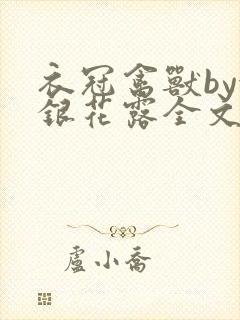 衣冠禽獸by
銀花露全文
盧小喬